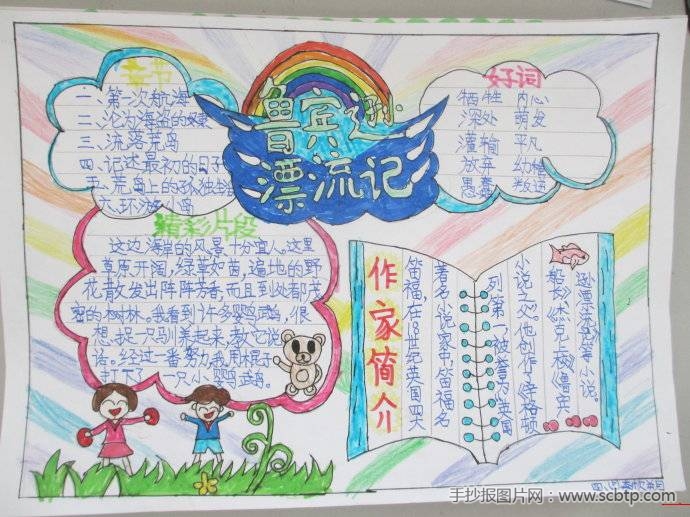 鲁宾逊
漂流记
章节
一、第一次航海
二、沦为海盗的奴隶
三、流落荒岛
四、记述最初的日子
五、荒岛上的孤独生
六、环游小岛
好词
牺牲 内心
深处 萌发
灌输 平凡
放弃 幼稚
愚蠢 叛逆
精彩片段
这边海岸的风景十分宜人。这里
草原开阔,绿草如茵,遍地的野
花散发出阵阵芳香,而且到处都茂
密的树林。我看到许多鹦鹉,很
想捉一只驯养起来,教它说
话。经过一番努力,我用棍子
打下了一只小鹦鹉。
作家简介
笛福,在18世纪英国四大
著名小说家中,笛福名
列第一,被誉为英国
小说之父。他创作《辛格顿
船长》《杰克上校》《鲁宾
逊漂流记》等小说。
手抄报图片网:www.scbtp.com